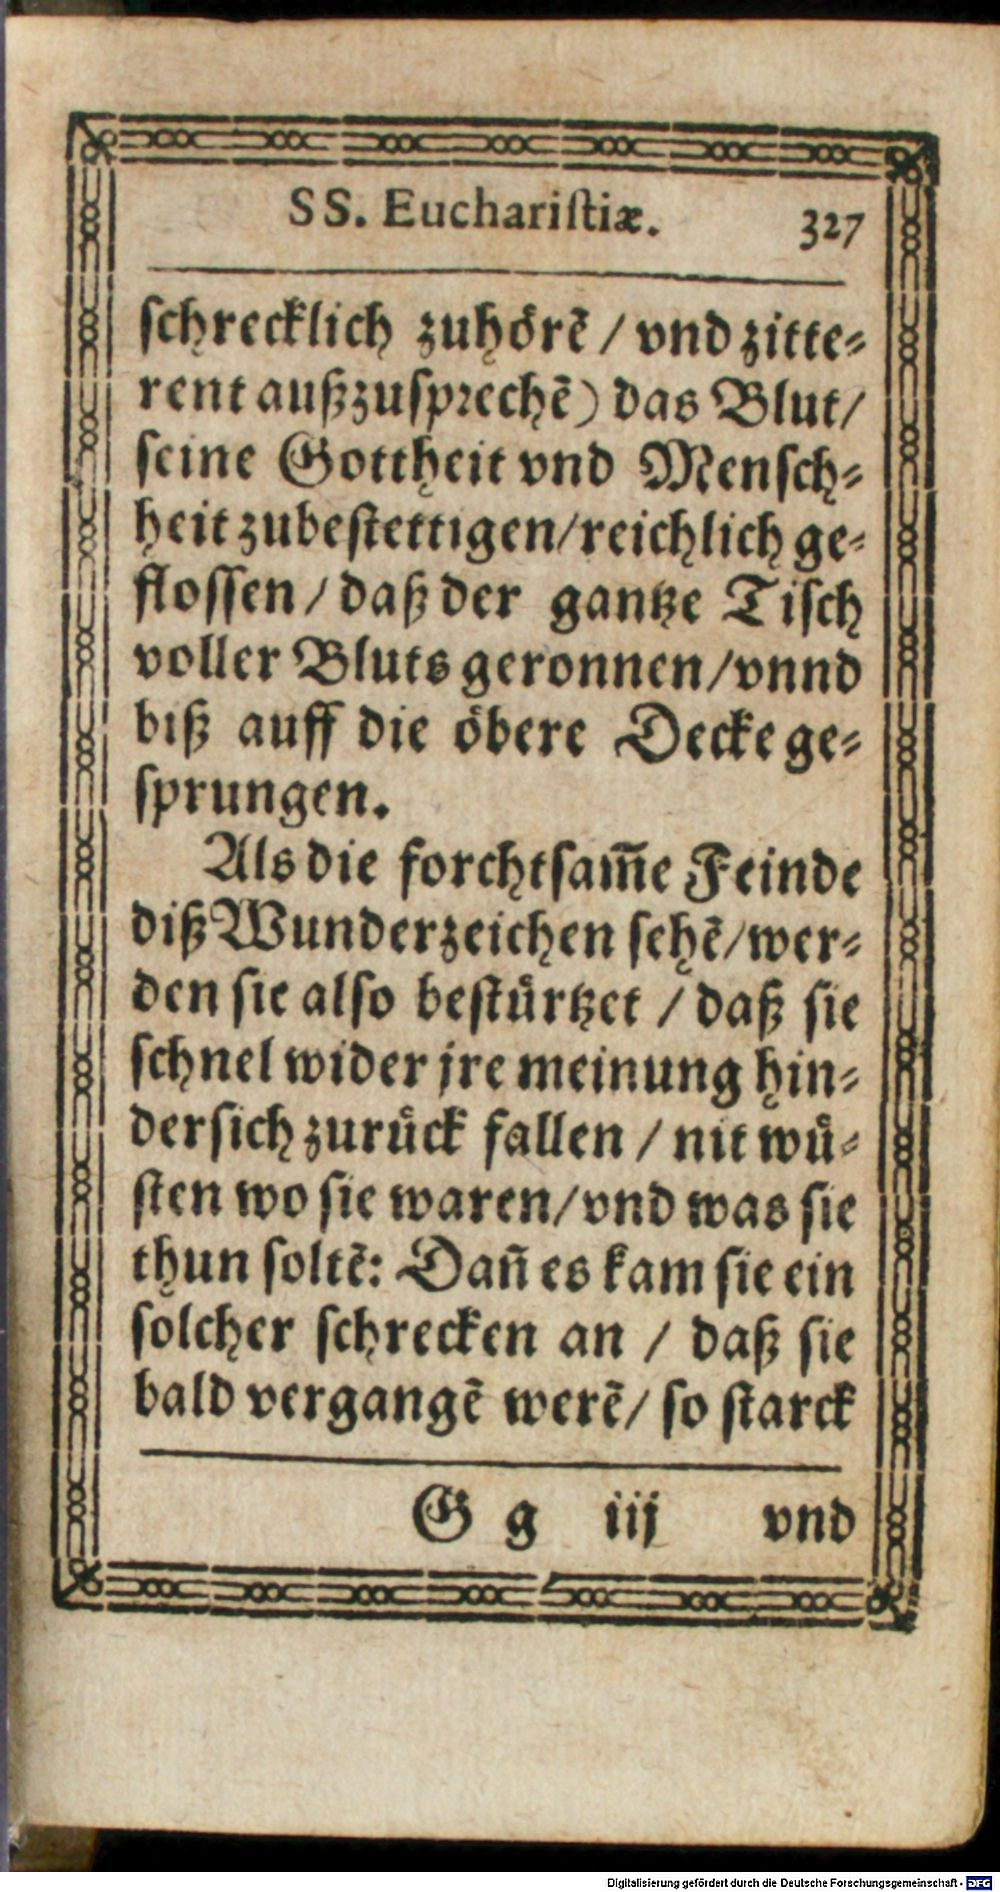 SS. Euchariſtiæ. 327
ſchrecklich zuhoͤrē / vnd zitte⸗
rent außzuſprechē) das Blut/
ſeine Gottheit vnd Menſch⸗
heit zubeſtettigen/reichlich ge⸗
floſſen / daß der gantze Tiſch
voller Bluts geronnen/vnnd
biß auff die oͤbere Decke ge⸗
ſprungen.
Als die forchtſam̄e Feinde
diß Wunderzeichen ſehē/wer⸗
den ſie alſo beſtuͤrtzet / daß ſie
ſchnel wider jre meinung hin⸗
derſich zuruͤck fallen / nit wuͤ⸗
ſten wo ſie waren/vnd was ſie
thun ſoltē: Dan̄ es kam ſie ein
ſolcher ſchrecken an / daß ſie
bald vergangē werē/ ſo ſtarck
G g iij vnd
Digitalisierung gefördert durch die Deutsche Forschungsgemeinschaft - DFG